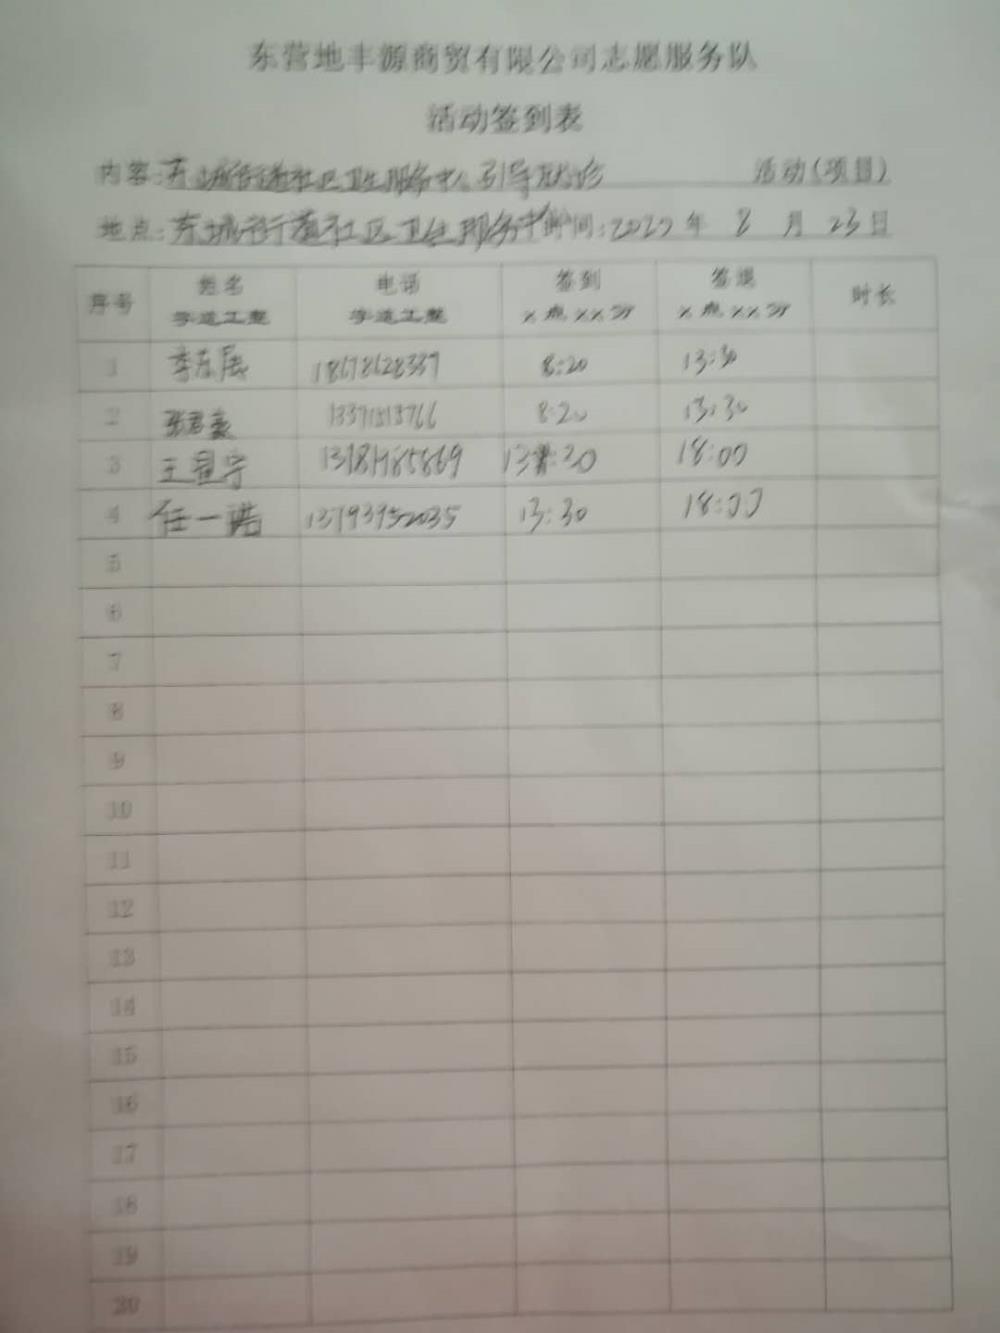 东营地丰源商贸有限公司志愿服务队
活动签到表
内容:东城街道社区卫生服务中心引导就诊 活动(项目)
地点:东城街道社区卫生服务中心 时间:2022 年 8 月 23 日
序号 姓名 电话 签到 签退 时长
字迹工整 字迹工整 X点XX分 X点XX分
1 8:20 13:30
2 张君豪 8:20 13:30
3 王 宁 13:30 18:00
4 任一诺 13793952035 13:30 18:00
5
6
7
8
9
10
11
12
13
14
15
16
17
18
19
20